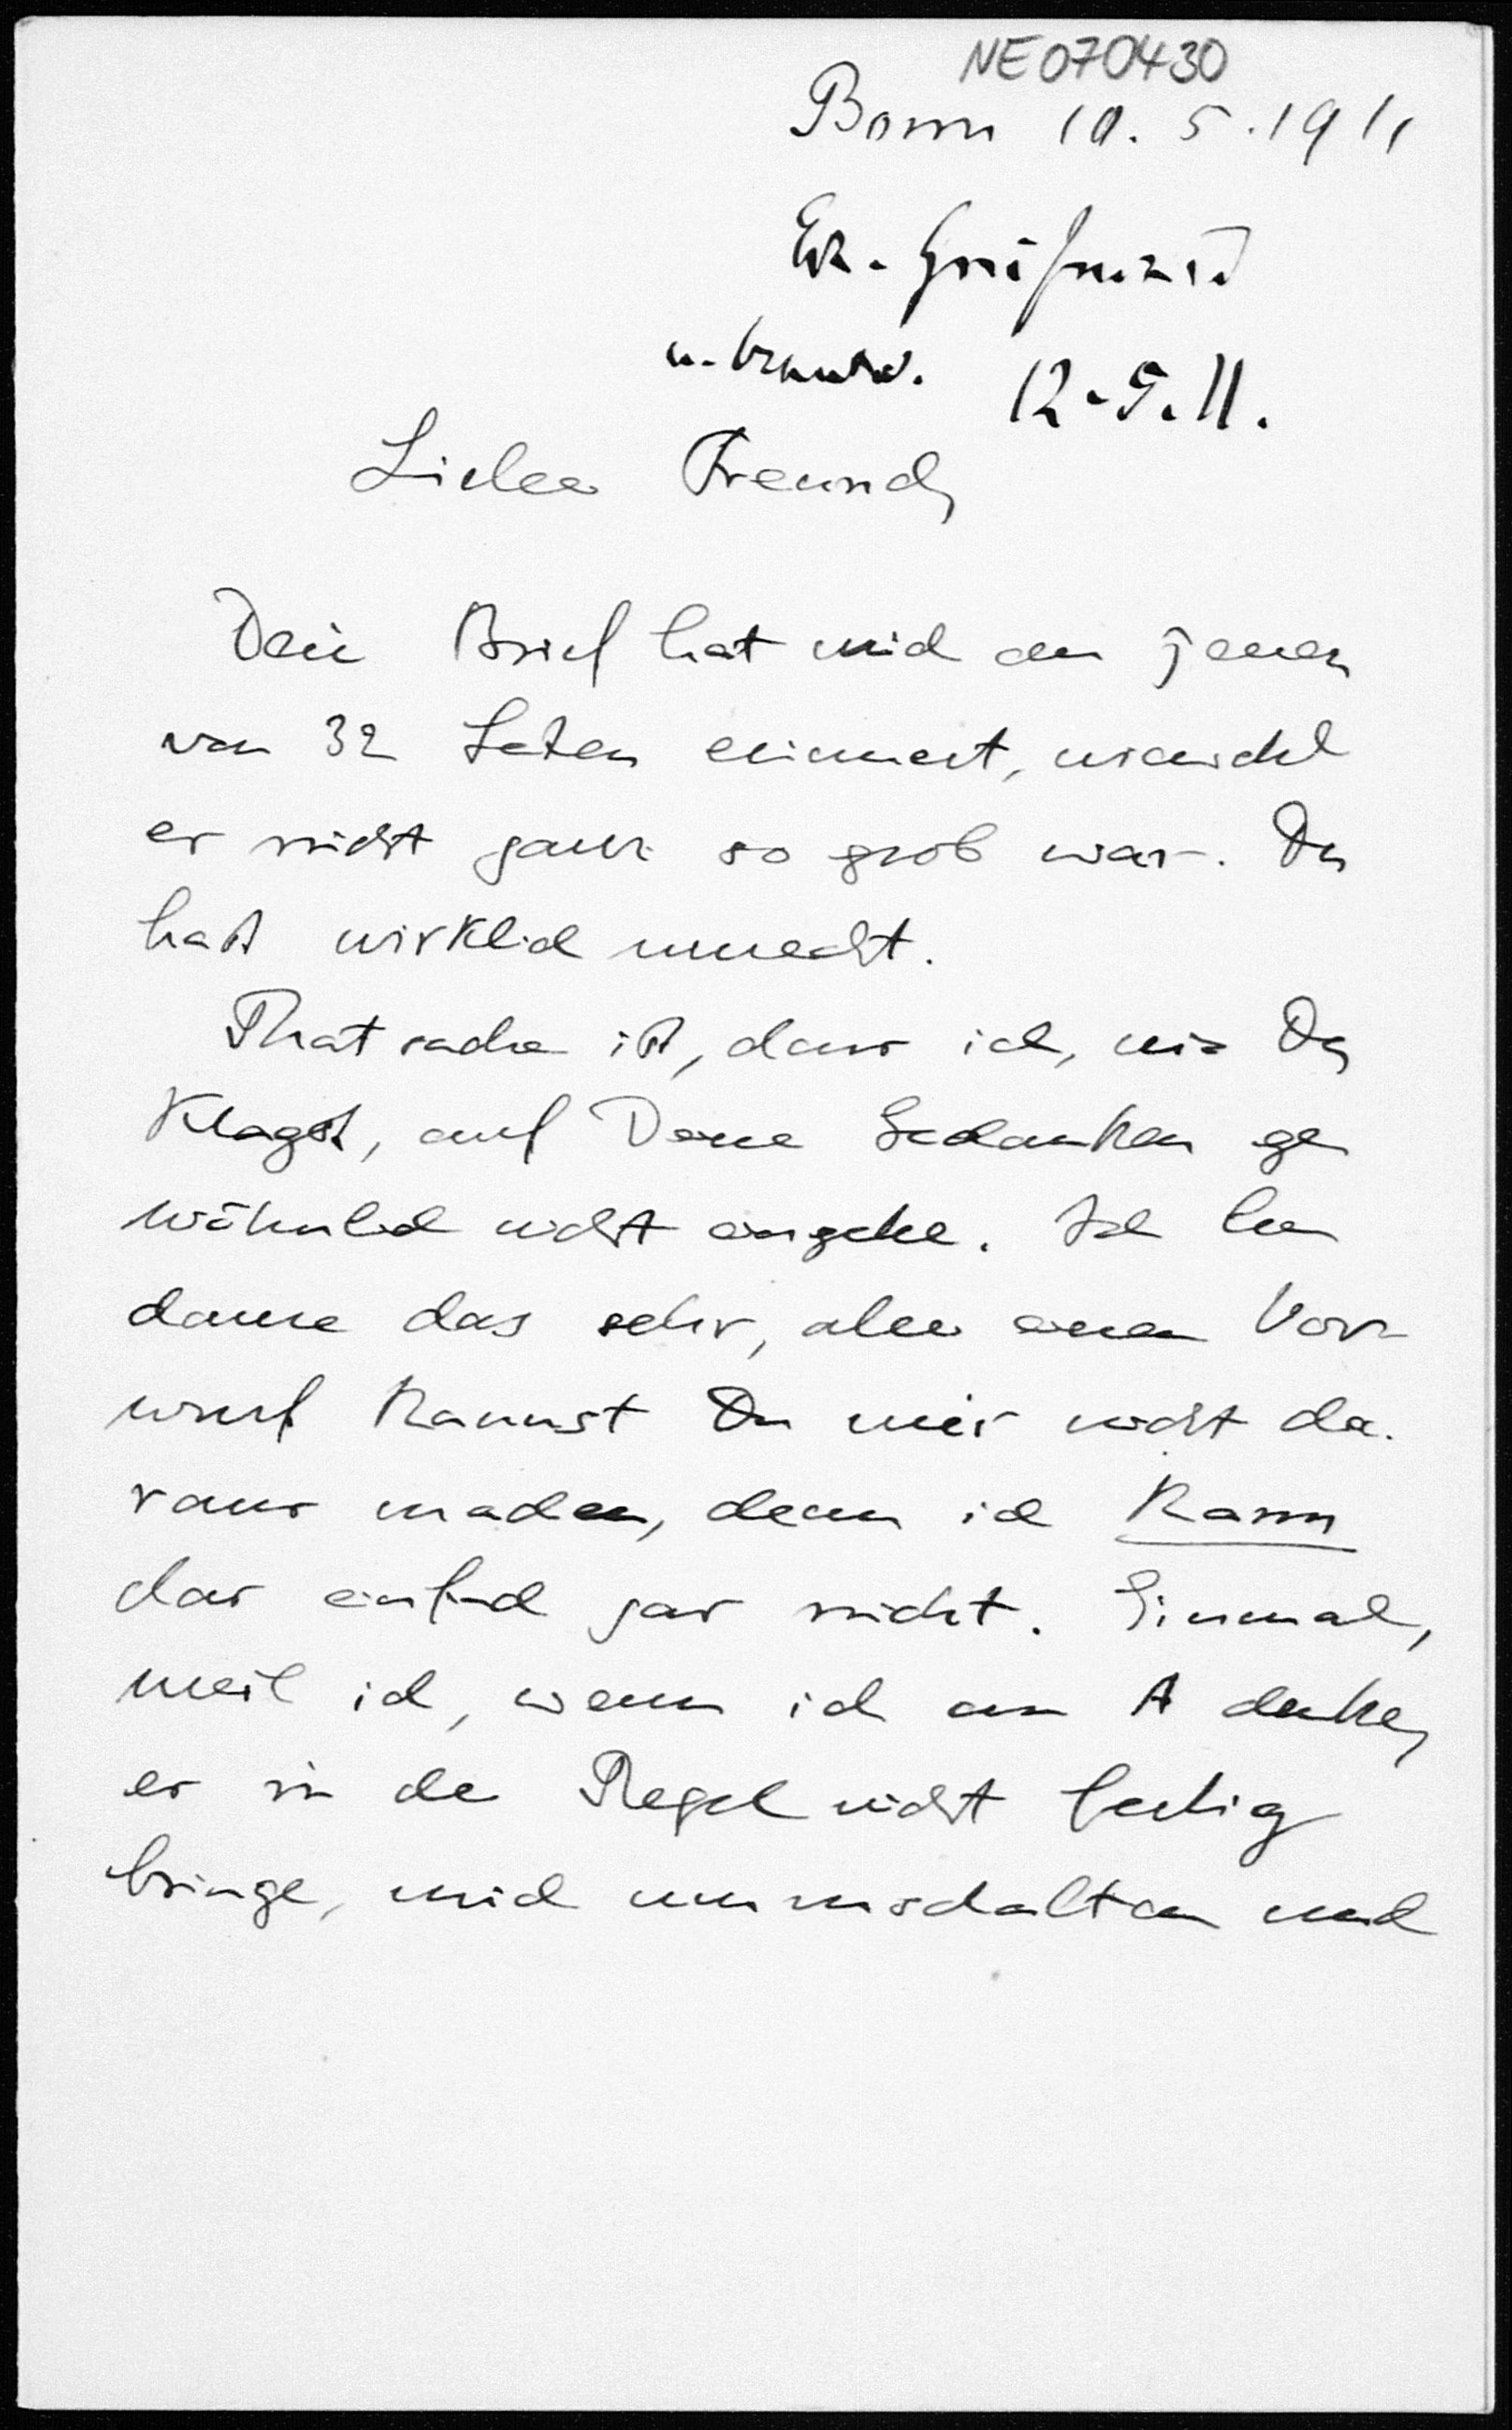 NE070430
Bonn 10. 5. 1911
Er. Greifswald
u. beantw. 12.5.11.
Lieber Freund,
Dein Brief hat mich an jenen
von 32 Seiten erinnert, wiewohl
er nicht ganz so grob war. Du
hast wirklich unrecht.
Thatsache ist, dass ich, wie Du
klagst, auf Deine Gedanken ge
wöhnlich nicht eingehe. Ich be
daure das sehr, aber einen Vor-
wurf kannst Du mir nicht da-
raus machen, denn ich kann
das einfach gar nicht. Einmal,
weil ich, wenn ich an A denke,
es in der Regel nicht fertig
bringe, mich umzuschalten und